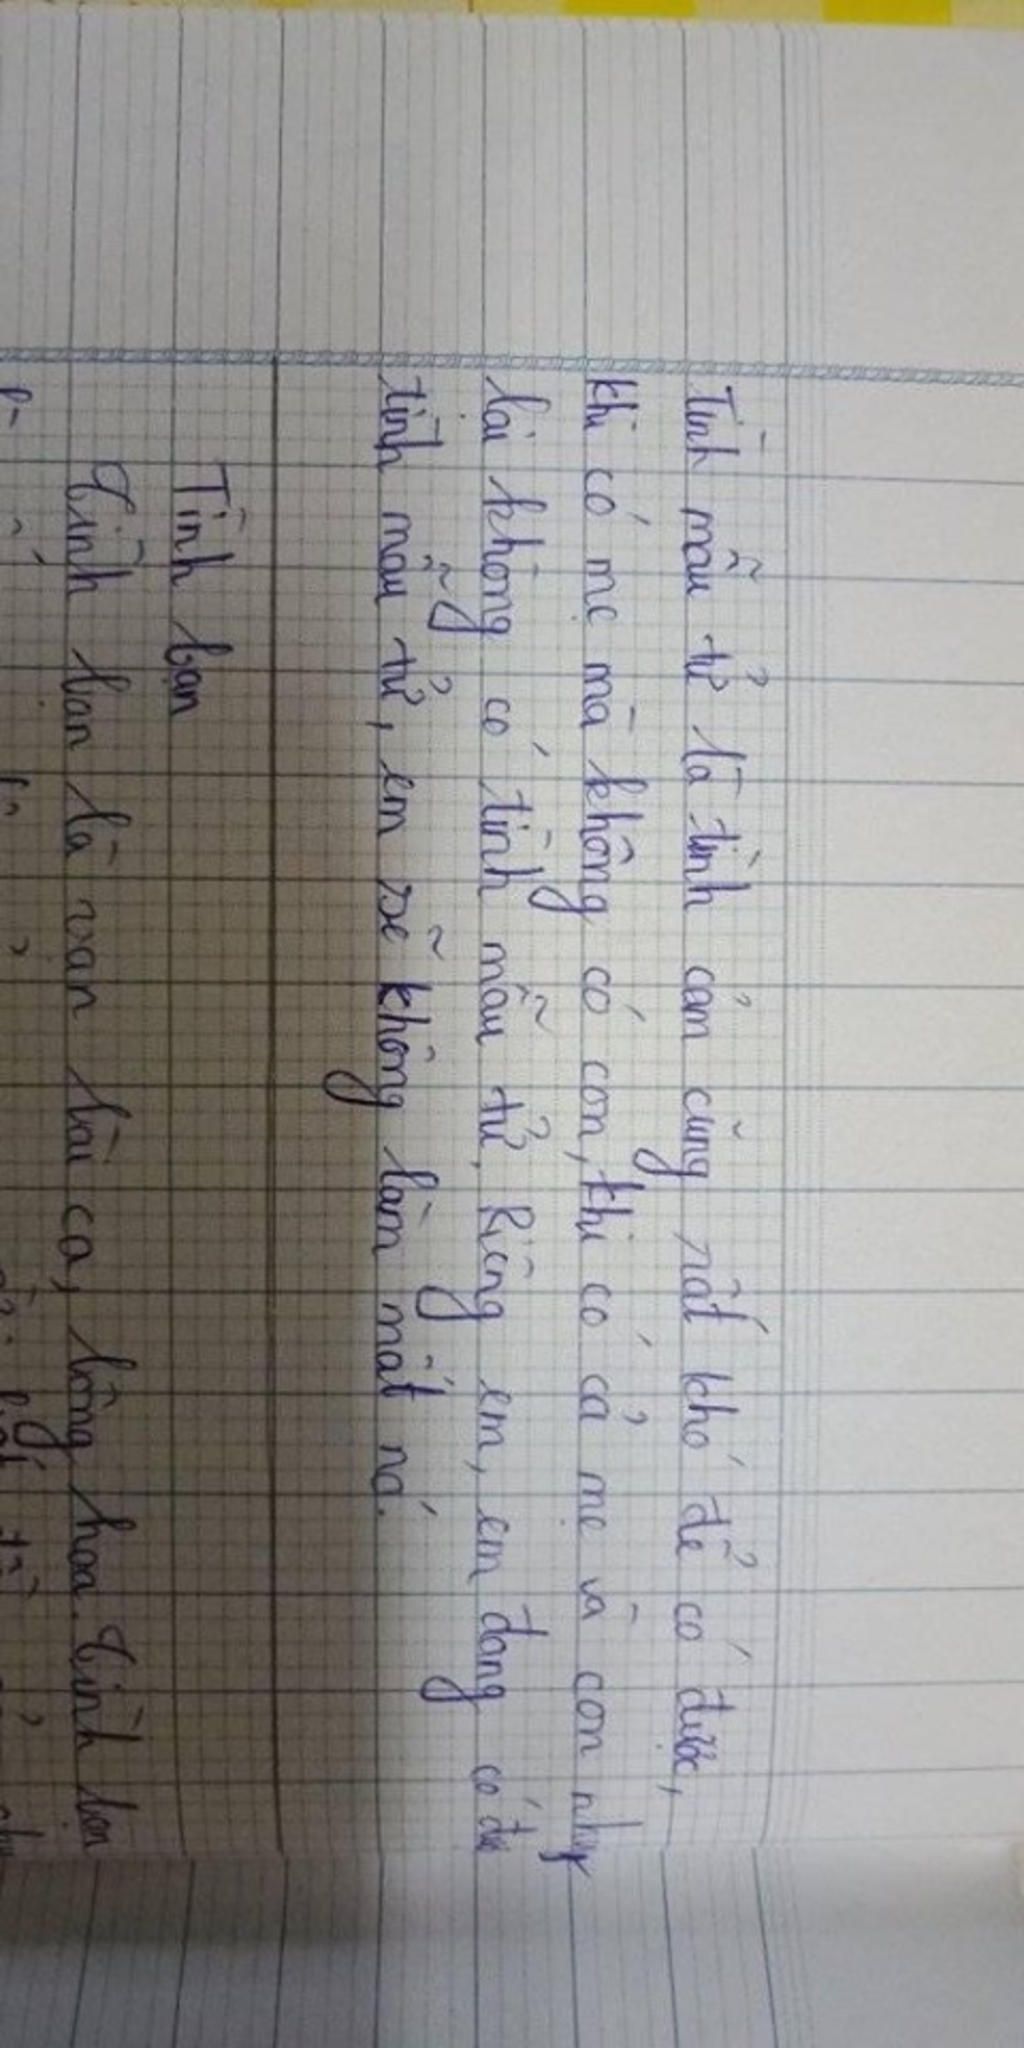 Tình mẫu tử là tình cảm cũng rất khó để có được,
khi có mẹ mà không có con, khi có cả mẹ và con nhưng
lại không có tình mẫu tử. Riêng em, em đang có đủ
tình mẫu tử, em sẽ không làm mất nó.
Tình bạn
Tình bạn là vạn lài ca, bông hoa. Tình bạn